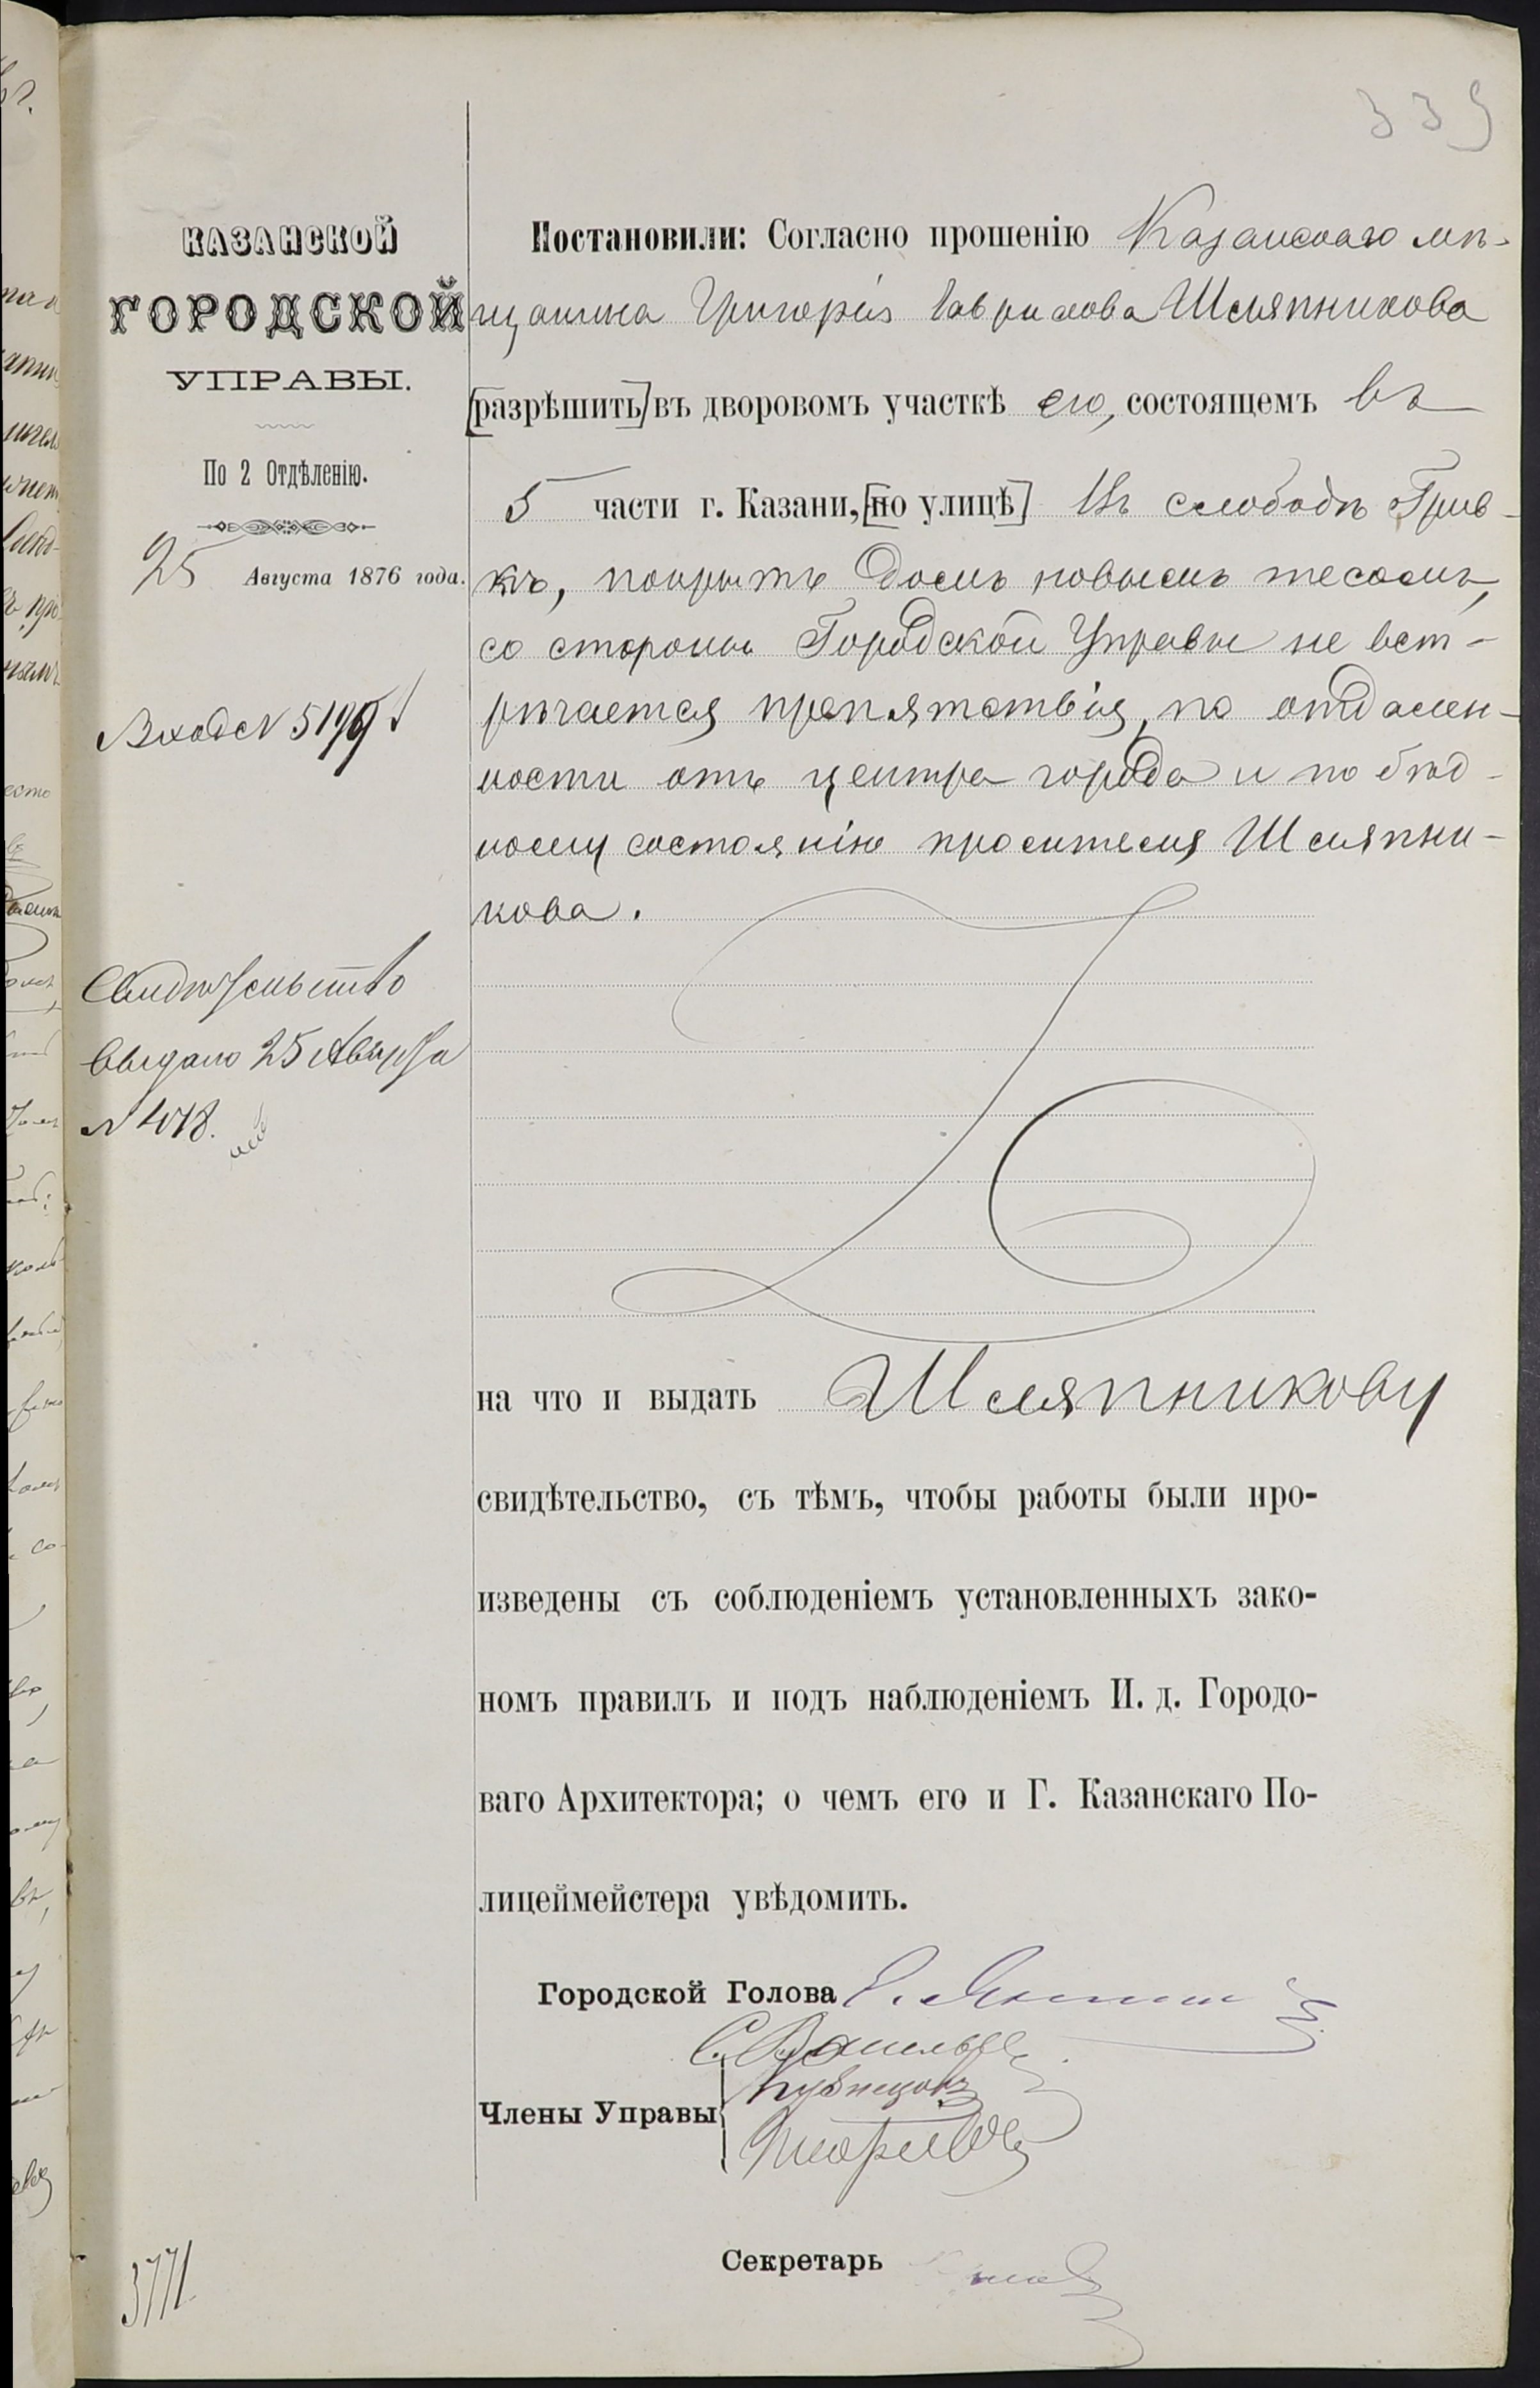 339
КАЗАНСКОЙ
ГОРОДСКОЙ
УПРАВЫ.
По 2 Отдѣленію.
25 Августа 1876 года.
Входс N 5199
Свидѣтельство
выдано 25 Августа
N 4078.
3771
Постановили: Согласно прошенію Казанскаго мѣ-
щанина Григорія Гаврилова Шляпникова
[разрѣшить] въ дворовомъ участкѣ его, состоящемъ въ
5 части г. Казани, [по улицѣ] въ слободѣ Грив-
кѣ, покрыть домъ новымъ тесомъ,
со стороны Городской Управы не вст-
рѣчается препятствія, по отдален-
ности отъ центра города и по бѣд-
ному состоянію просителя Шляпни-
кова.
на что и выдать Шляпникову
свидѣтельство, съ тѣмъ, чтобы работы были про-
изведены съ соблюденіемъ установленныхъ зако-
номъ правилъ и подъ наблюденіемъ И. д. Городо-
ваго Архитектора; о чемъ его и Г. Казанскаго По-
лицеймейстера увѣдомить.
Городской Голова Э. Янишъ
С. Васильевъ
Члены Управы Кузнецовъ
Секретарь